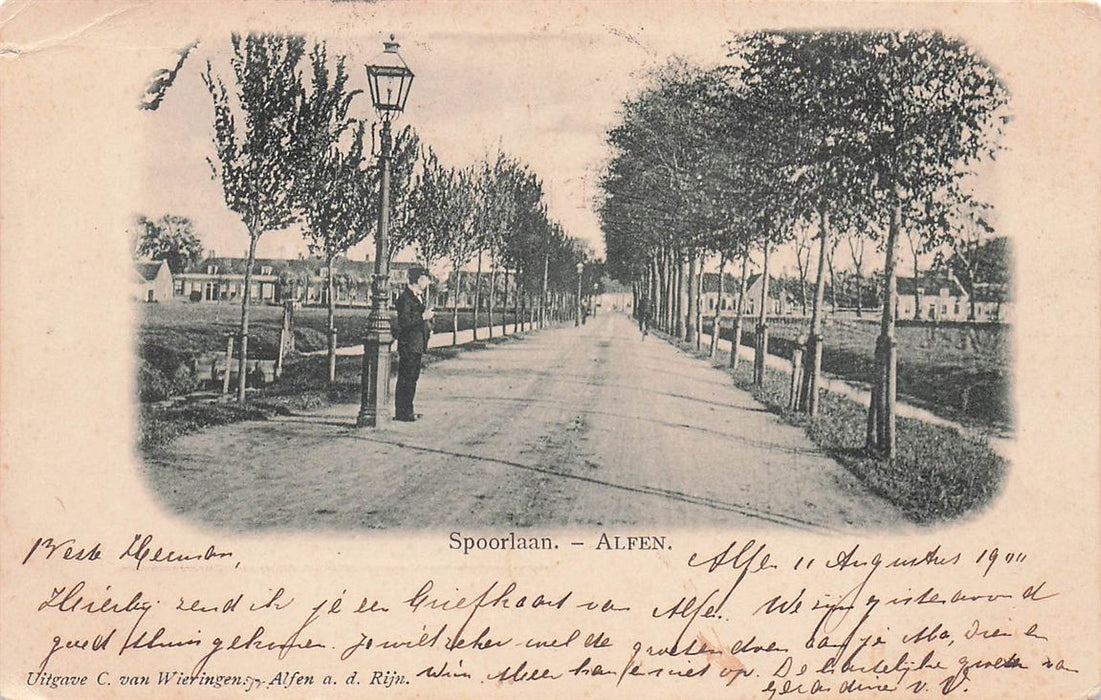 Spoorlaan. – ALFEN.
Alfen 11 Augustus 1901
Beste Herman,
Hierbij zend ik je een briefkaart van Alfen. We zijn gisteravond
goed thuis gekomen. Je wilt zeker wel de groeten doen aan je Ma, Dien en
Wim. Meer kan er niet op. De hartelijke groeten van
Gerardine v. V.
Uitgave C. van Wieringen, Alfen a. d. Rijn.